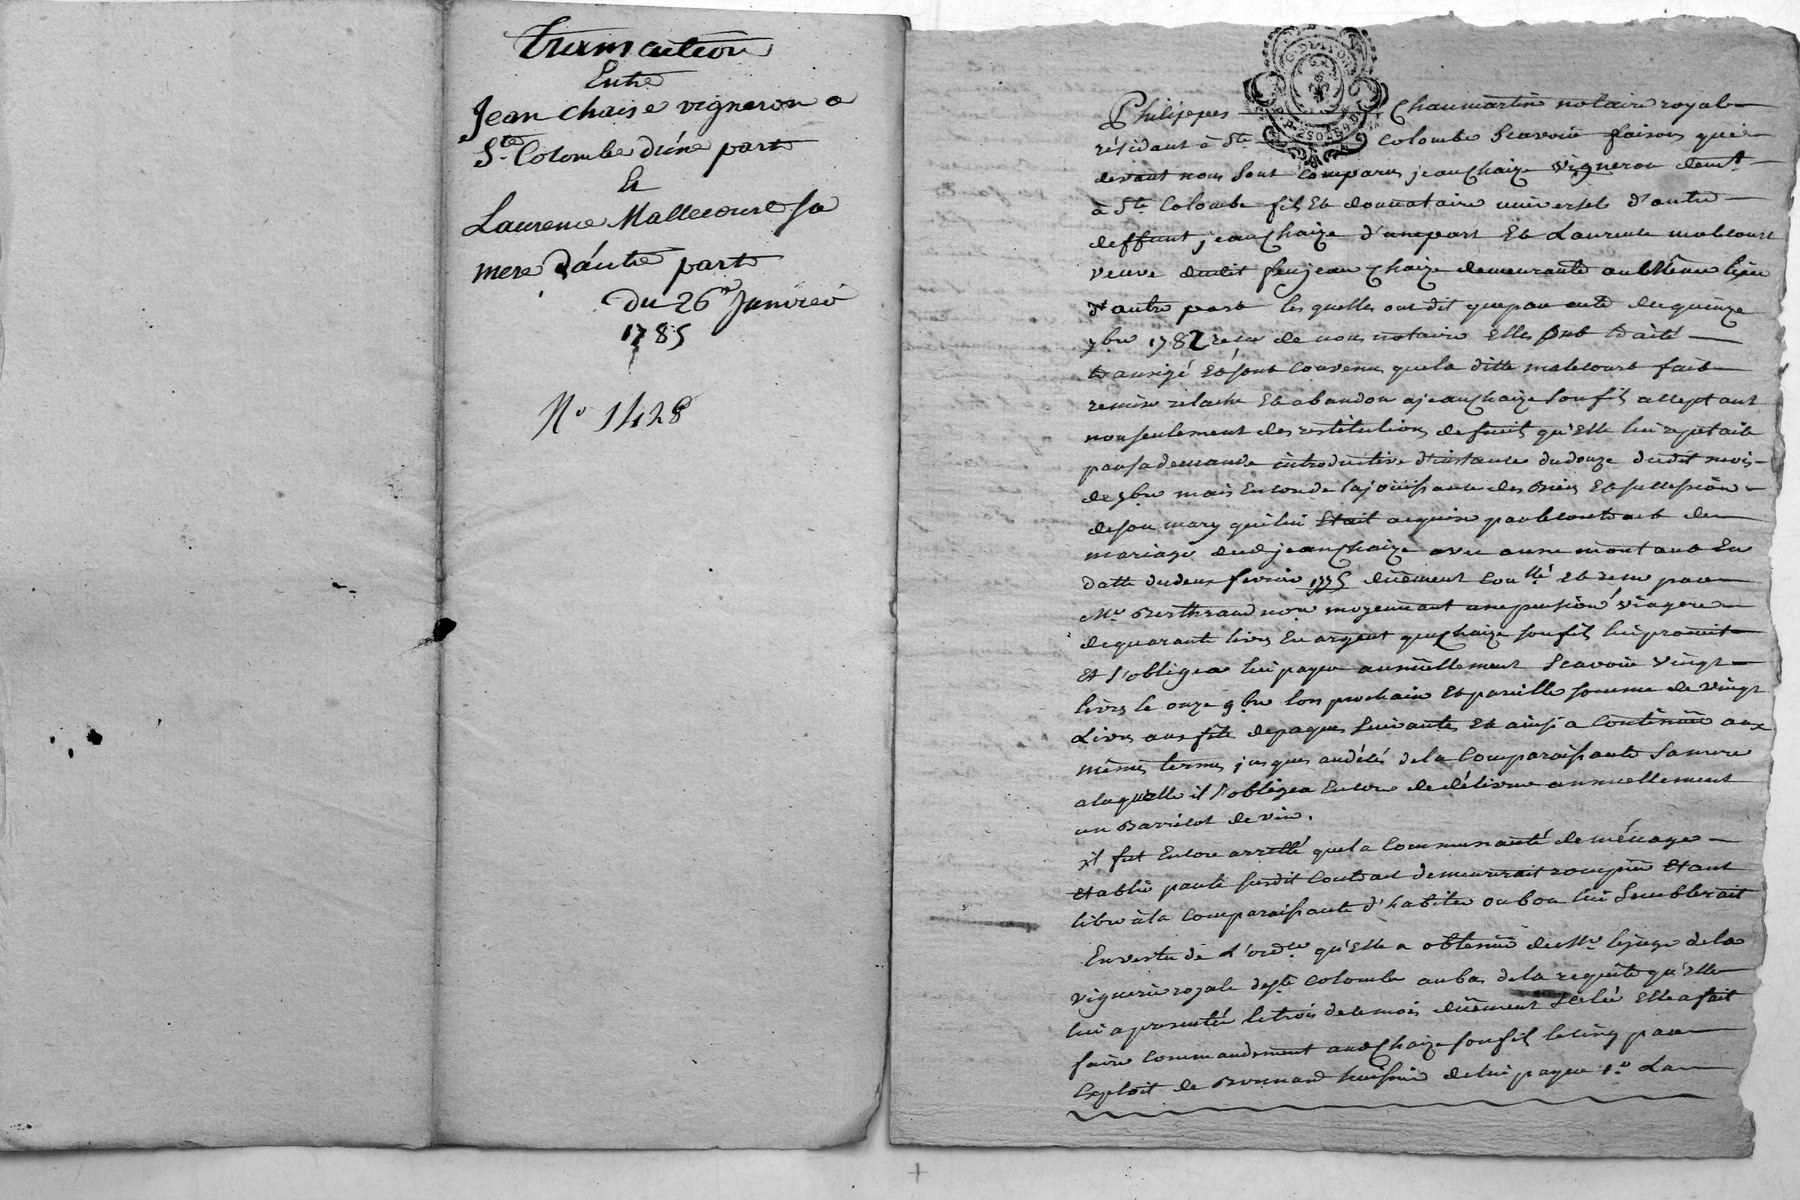 transaction
Entre
Jean chaise vigneron a
Ste Colombe d'une part
Et
Laurence Mallecourt sa
mere d'autre part
du 26e Janvier
1785
No 1428
Philippes Chaumartin notaire royal
résidant à Ste Colombe scavoir faisons que
devant nous sont comparus jean Chaize vigneron demt
à Ste Colombe fils Et donnataire universel d'autre
deffunt jean Chaize d'une part Et Laurence malecourt
veuve dudit feu jean Chaize demeurante au même lieu
d'autre part les quelles ont dit que par acte du quinze
9bre 1782 reçu de nous notaire Elles ont traité
transigé Et sont convenus que la ditte malecourt fait
remise relache Et abandon a jean Chaize son fils acceptant
non seulement des restitutions de fruits qu'Elle lui repetait
par sa demande introductive d'instance du douze dudit mois
de 9bre mais Encor de la jouissance des Biens Et succession
de son mary qui lui Etait acquise par le contract de
mariage dud jean Chaize avec anne montant En
datte du deux fevrier 1775 duement conllé Et reçu par
Me Berthrand nore moyennant une pension viagere
de quarante livres En argent que Chaize son fils lui promit
Et s'obligea lui payer annuellement scavoir vingt
livres le onze 9bre lors prochain Et pareille somme de vingt
Livres aux fête de paques suivantes Et ainsi a continuer aux
mêmes termes jusques au décès de la Comparaissante sa mere
a laquelle il s'obligea Encore de délivrer annuellement
un Barricot de vin.
il fut Encore arretté que la Communauté de ménage
Etablie par le susdit Contract demeurerait rompüe Etant
libre à la Comparaissante d'habiter ou bon lui semblerait
En vertu de L'ordce qu'Elle a obtenüe de Mr le juge de la
viguerie royale de Ste Colombe au bas de la requête qu'Elle
lui a presentée le trois de ce mois duement scelée Elle a fait
faire commandement aud Chaize son fils le cinq par
Exploit de Bonnard huissier de lui payer 1o La